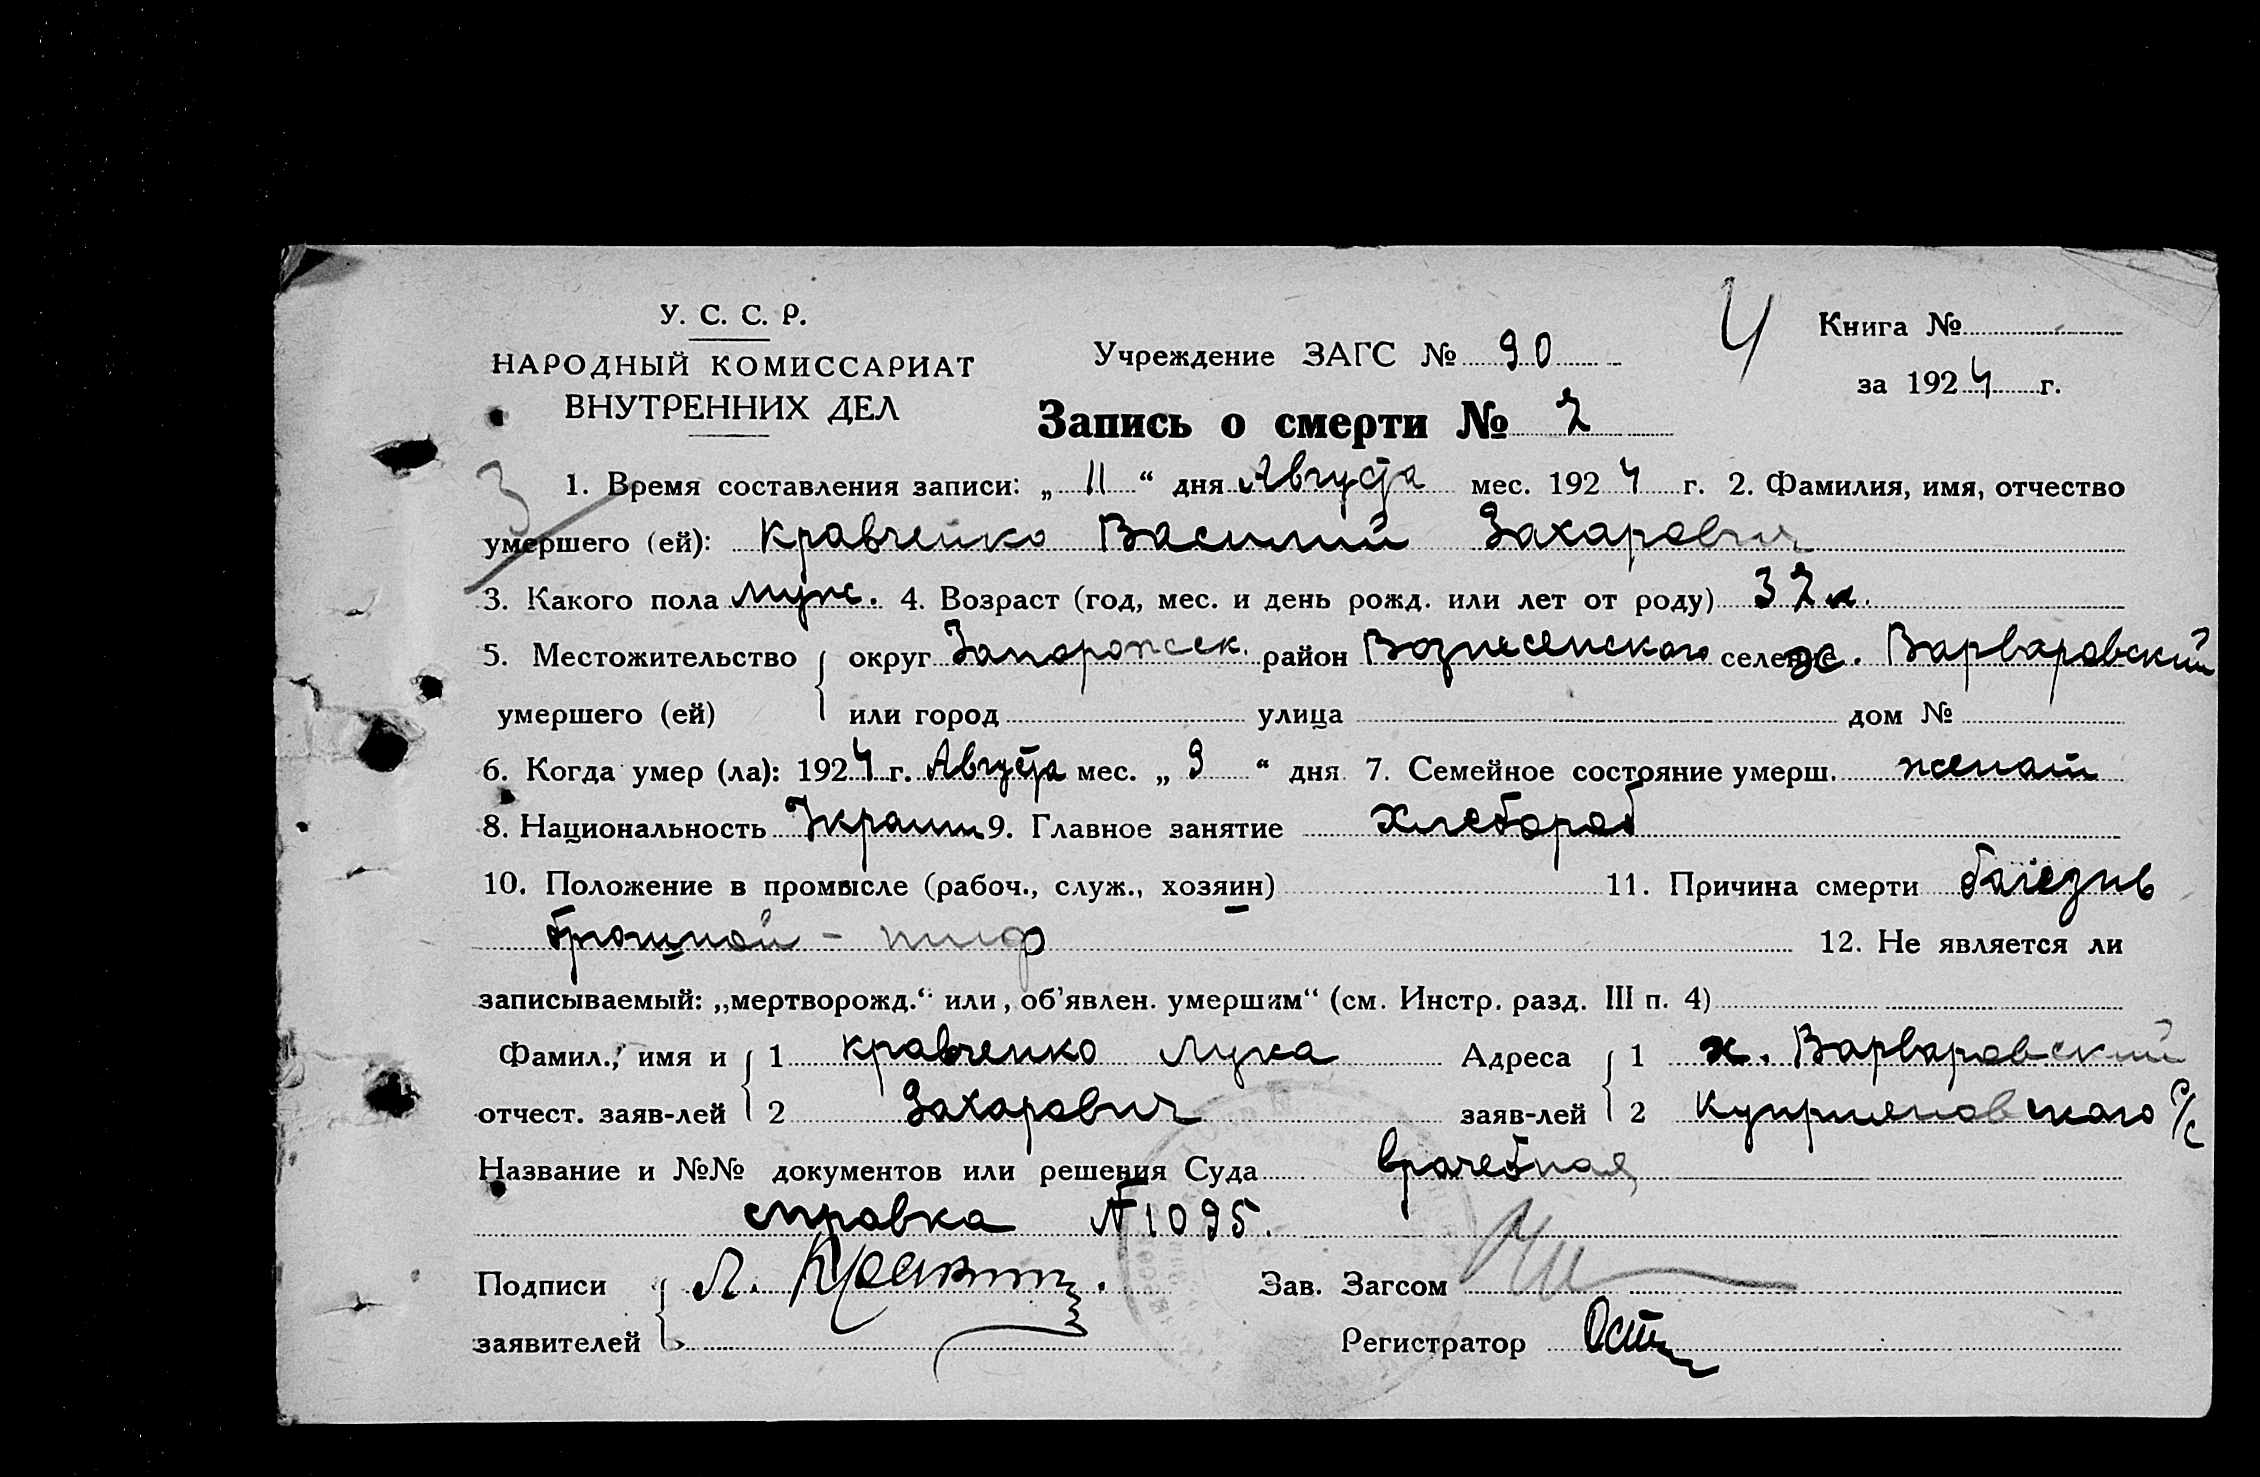 У. С. С. Р.
НАРОДНЫЙ КОМИССАРИАТ
ВНУТРЕННИХ ДЕЛ
Учреждение ЗАГС № 90
4
Книга №
за 1924 г.
Запись о смерти № 2
3
1. Время составления записи: „ 11 “ дня Августа мес. 1924 г. 2. Фамилия, имя, отчество
умершего (ей): Кравченко Василий Захарович
3. Какого пола муж. 4. Возраст (год, мес. и день рожд. или лет от роду) 32 л.
5. Местожительство округ Запорожск. район Вознесенского селение х. Варваровский
умершего (ей) или город улица дом №
6. Когда умер (ла): 1924 г. Августа мес. „ 9 “ дня 7. Семейное состояние умерш. женат
8. Национальность Украин 9. Главное занятие хлебороб
10. Положение в промысле (рабоч., служ., хозяин) 11. Причина смерти болезнь
брюшной - тиф 12. Не является ли
записываемый: „мертворожд.“ или „об'явлен. умершим“ (см. Инстр. разд. III п. 4)
Фамил., имя и 1 Кравченко Лука Адреса 1 х. Варваровский
отчест. заяв-лей 2 Захарович заяв-лей 2 Куприяновского с/с
Название и №№ документов или решения Суда врачебная
справка № 1095.
Подписи Л. Зав. Загсом
заявителей Регистратор